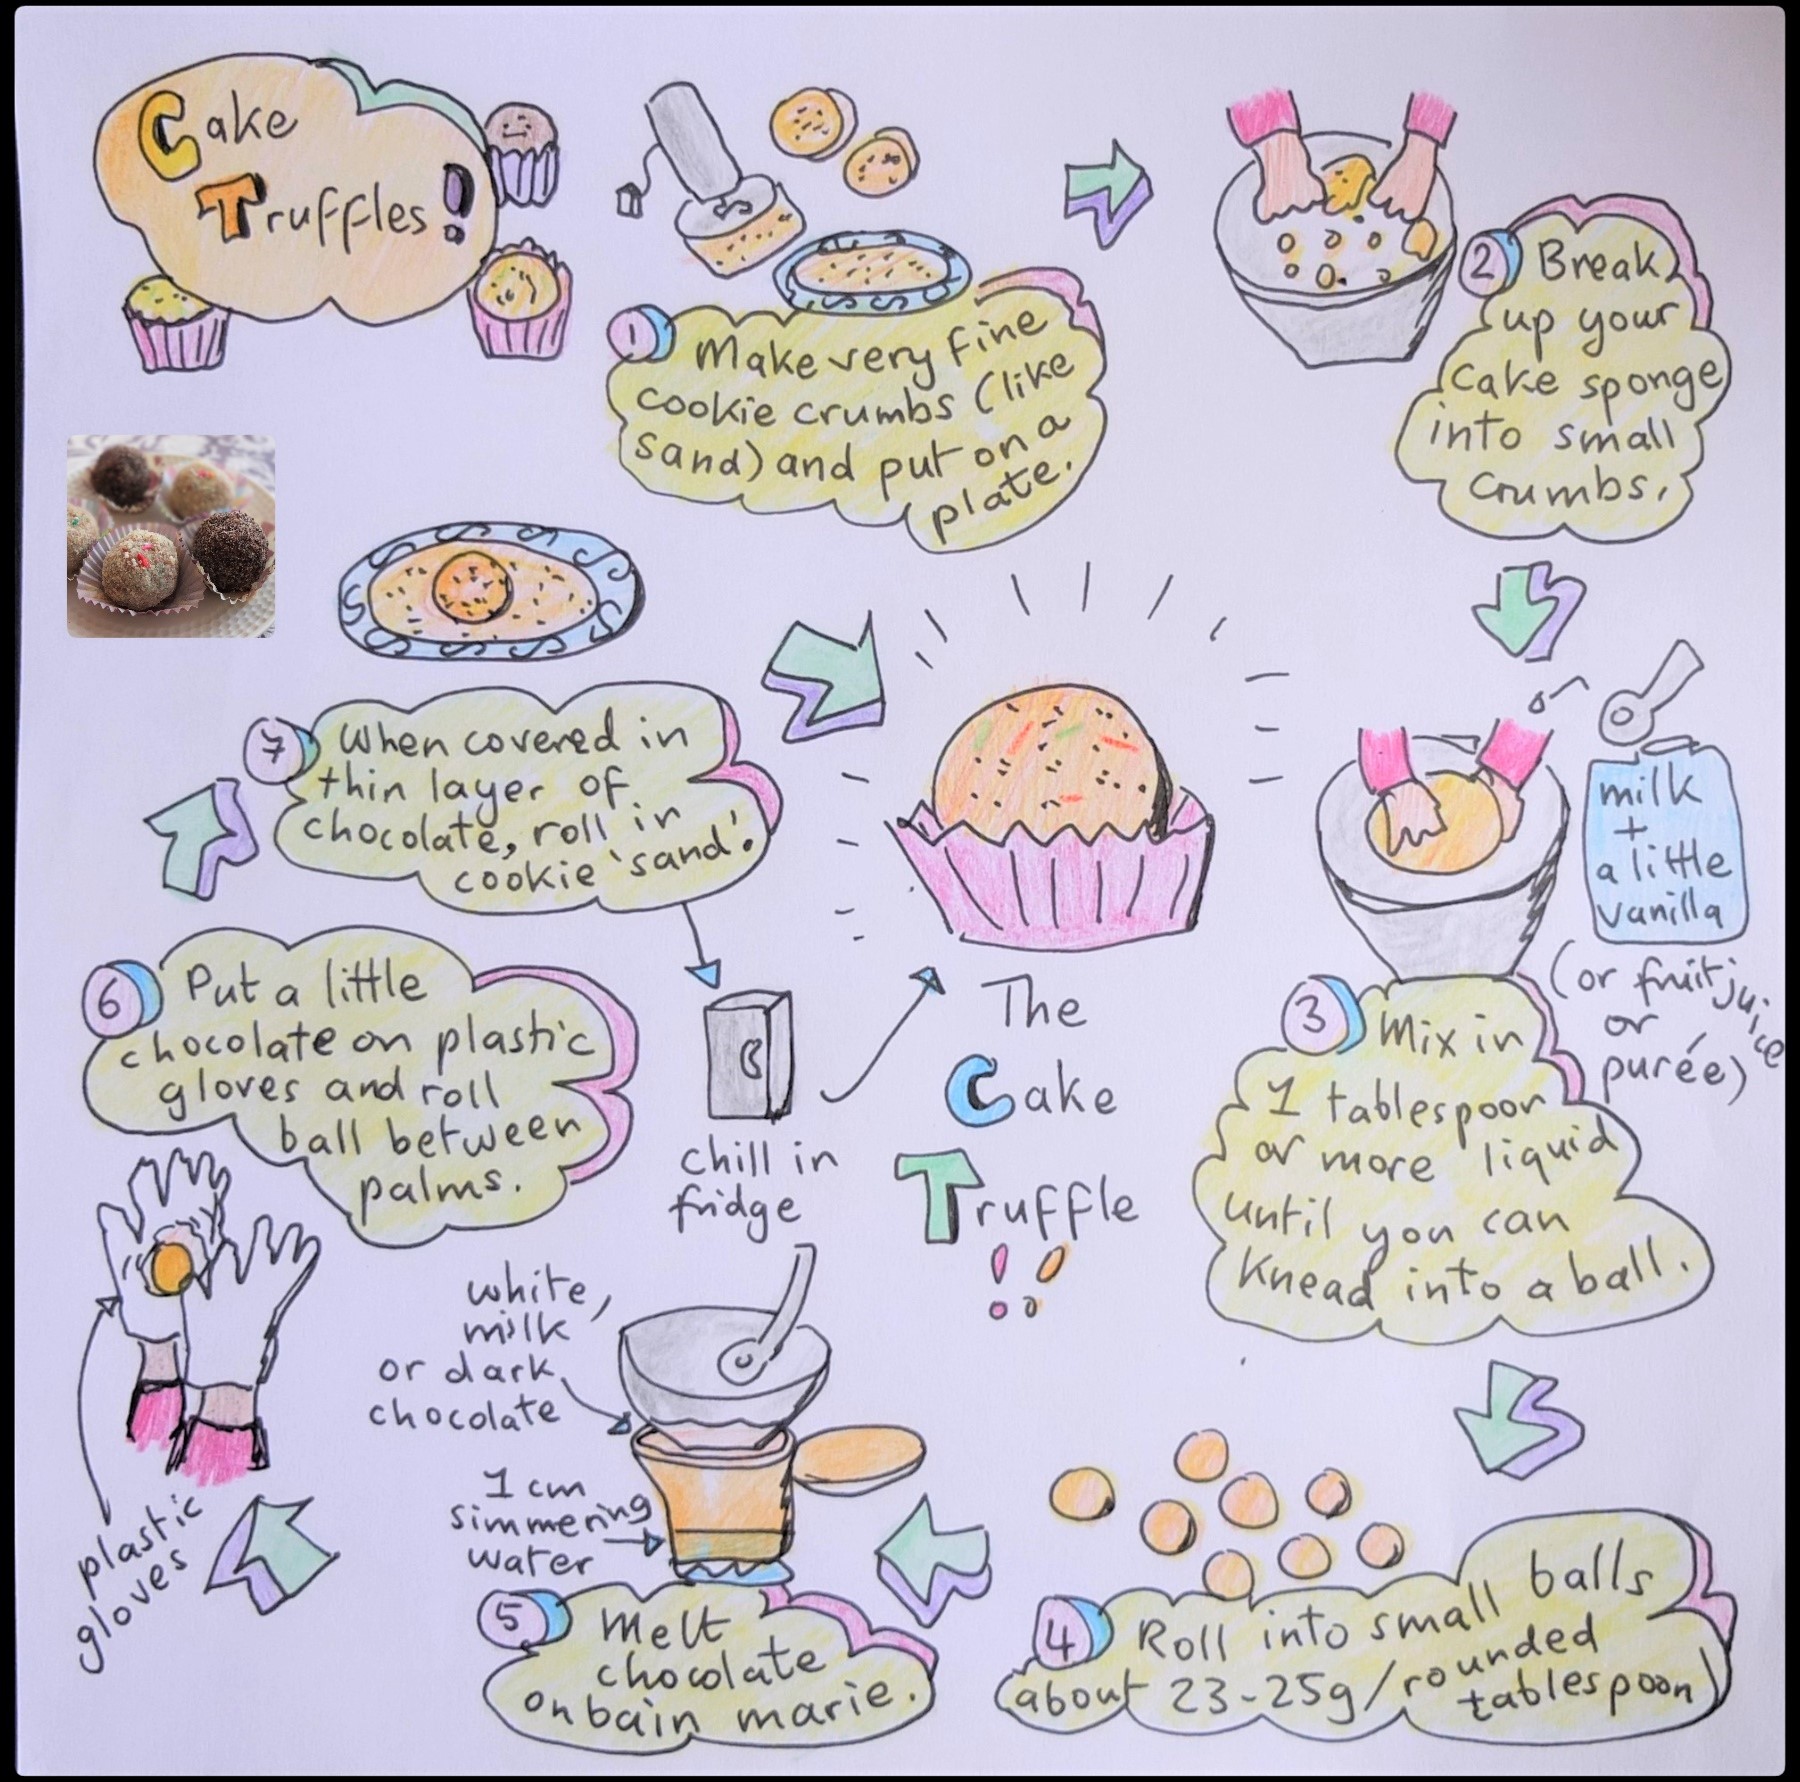 Cake
Truffles!
1 Make very fine
cookie crumbs (like
sand) and put on a
plate.
2 Break
up your
cake sponge
into small
crumbs.
milk
+
a little
vanilla
(or fruit juice
or
purée)
3 Mix in
1 tablespoon
or more liquid
until you can
knead into a ball.
4 Roll into small balls
(about 23-25g/rounded
tablespoon)
white,
milk
or dark
chocolate
1 cm
simmering
water
5 Melt
chocolate
on bain marie.
6 Put a little
chocolate on plastic
gloves and roll
ball between
palms.
plastic
gloves
7 When covered in
thin layer of
chocolate, roll in
cookie 'sand'.
chill in
fridge
The
Cake
Truffle
!!